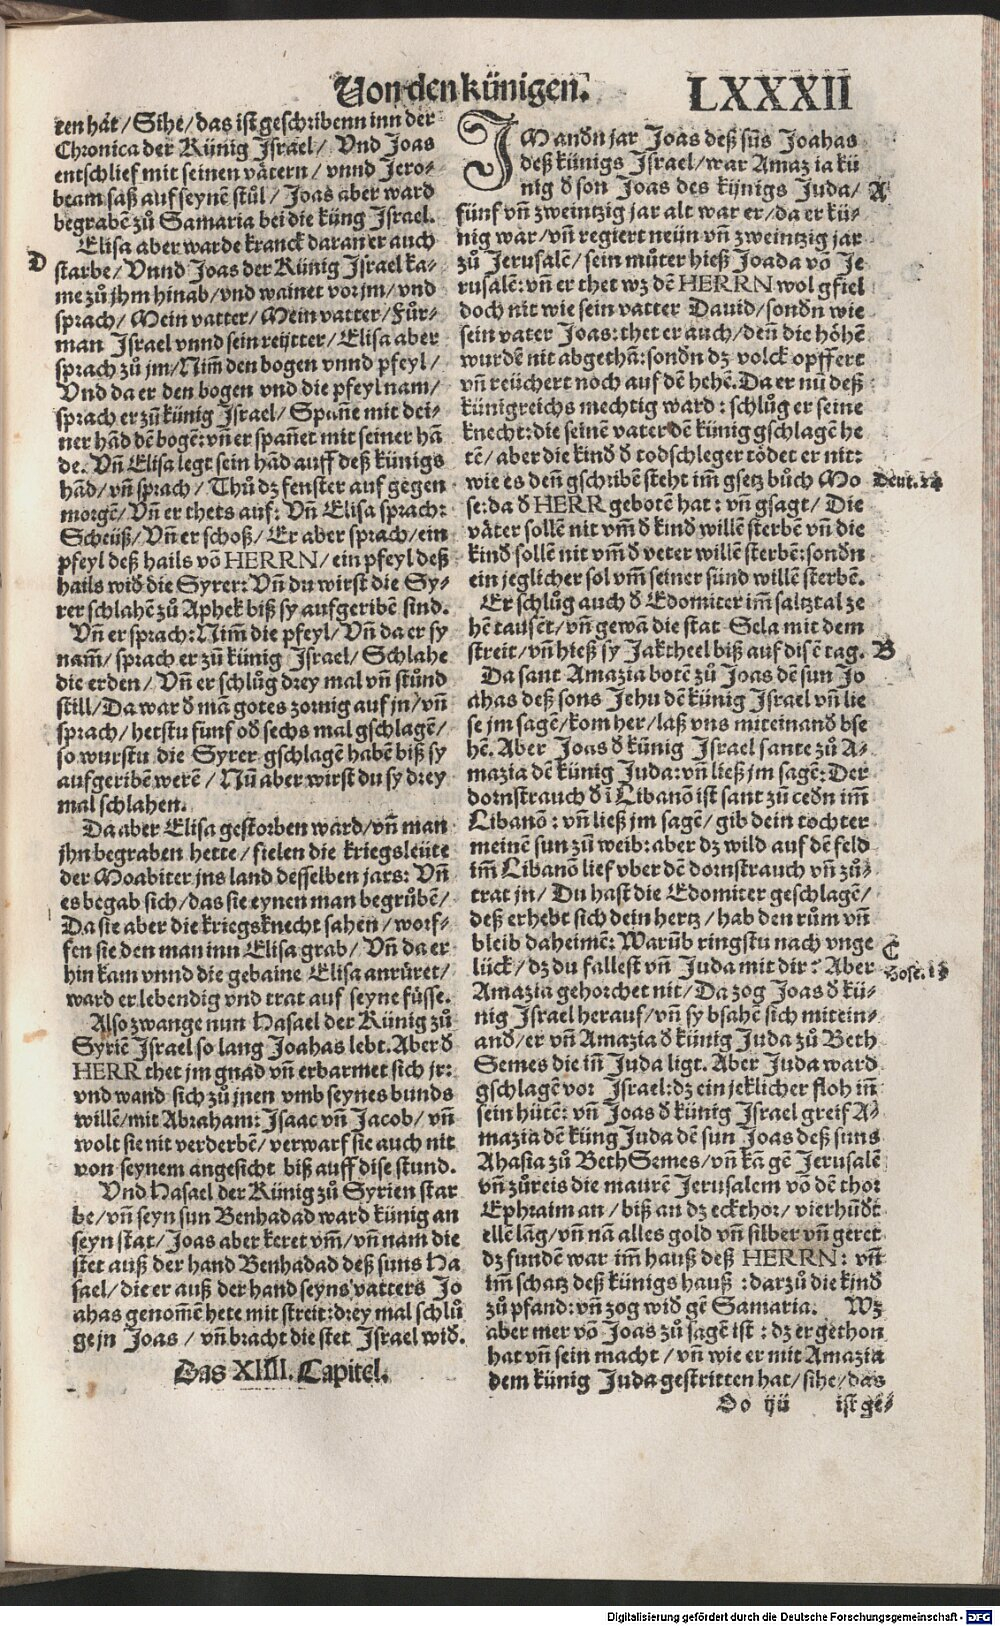 Von den künigen. LXXXII
ten hat / Sihe / das ist geschribenn inn der
Chronica der Künig Israel / Vnd Joas
entschlief mit seinen vätern / vnnd Jero-
beam saß auf seynē stůl / Joas aber ward
begrabē zů Samaria bei die küng Israel.
D
Elisa aber warde kranck daran er auch
starbe / Vnnd Joas der Künig Israel ka-
me zů jhm hinab / vnd wainet vor jm / vnd
sprach / Mein vatter / Mein vatter / Für-
man Israel vnnd sein reijtter / Elisa aber
sprach zů jm / Nim̄ den bogen vnnd pfeyl /
Vnd da er den bogen vnd die pfeyl nam /
sprach er zů künig Israel / Spañe mit dei-
ner hād dē bogē: vñ er spañet mit seiner hā
de. Vñ Elisa legt sein hād auff deß künigs
hād / vñ sprach / Thů dz fenster auf gegen
morgē / Vñ er thets auf: Vñ Elisa sprach:
Scheüß / Vñ er schoß / Er aber sprach / ein
pfeyl deß hails vō HERRN / ein pfeyl deß
hails wið die Syrer: Vñ du wirst die Sy-
rer schlahē zů Aphek biß sy aufgeribē sind.
Vñ er sprach: Nim̄ die pfeyl / Vñ da er sy
nam̄ / sprach er zů künig Israel / Schlahe
die erden / Vñ er schlůg drey mal vñ stůnd
still / Da war ð mā gotes zornig auf jn / vñ
sprach / hetstu fünf oð sechs mal gschlagē /
so wurstu die Syrer gschlagē habē biß sy
aufgeribē werē / Nů aber wirst du sy drey
mal schlahen.
Da aber Elisa gestorben ward / vñ man
jhn begraben hette / fielen die kriegsleüte
der Moabiter jns land desselben jars: Vñ
es begab sich / das sie eynen man begrůbē /
Da sie aber die kriegsknecht sahen / worf-
fen sie den man inn Elisa grab / Vñ da er
hin kam vnnd die gebaine Elisa anrůret /
ward er lebendig vnd trat auf seyne füsse.
Also zwange nun Hasael der Künig zů
Syriē Israel so lang Joahas lebt. Aber ð
HERR thet jm gnad vñ erbarmet sich jr:
vnd wand sich zů jnen vmb seynes bunds
willē / mit Abraham: Isaac vñ Jacob / vñ
wolt sie nit verderbē / verwarf sie auch nit
von seynem angesicht biß auff dise stund.
Vnd Hasael der Künig zů Syrien star
be / vñ seyn sun Benhadad ward künig an
seyn stat / Joas aber keret vm̄ / vñ nam die
stet auß der hand Benhadad deß suns Ha
sael / die er auß der hand seyns vatters Jo
ahas genom̄ē hete mit streit: drey mal schlů
ge jn Joas / vñ bracht die stet Israel wið.
Das XIIII. Capitel.
IM andñ jar Joas deß sůs Joahas
deß künigs Israel / war Amazia kü
nig ð son Joas des kijnigs Juda /
A
fünf vñ zweintzig jar alt war er / da er kü-
nig war / vñ regiert neijn vñ zweintzig jar
zů Jerusalē / sein můter hieß Joada vō Je
rusalē: vñ er thet wz dē HERRN wol gfiel
doch nit wie sein vatter Dauid / sondñ wie
sein vater Joas: thet er auch / deñ die höhē
wurdē nit abgethā: sondñ dz volck opffert
vñ reüchert noch auf dē hehē. Da er nů deß
künigreichs mechtig ward: schlůg er seine
knecht: die seinē vater dē künig gschlagē he
tē / aber die kind ð todschleger tödet er nit:
wie es deñ gschribē steht im̄ gsetz bůch Mo
Deut. 24
se: da ð HERR gebotē hat: vñ gsagt / Die
väter sollē nit vm̄ ð kind willē sterbē vñ die
kind sollē nit vm̄ ð veter willē sterbē: sondñ
ein jeglicher sol vm̄ seiner sünd willē sterbē.
Er schlůg auch ð Edomiter im̄ saltztal ze
hē tausēt / vñ gewā die stat Sela mit dem
streit / vñ hieß sy Jaktheel biß auf disē tag.
B
Da sant Amazia botē zů Joas dē sun Jo
ahas deß sons Jehu dē künig Israel vñ lie
se jm sagē / kom her / laß vns miteinand bse
hē. Aber Joas ð künig Israel sante zů A-
mazia dē künig Juda: vñ ließ jm sagē: Der
dornstrauch ð ī Libanō ist sant zů cedñ im̄
Libanō: vñ ließ jm sagē / gib dein tochter
meinē sun zů weib: aber dz wild auf dē feld
im̄ Libanō lief vber dē dornstrauch vñ zů-
trat jn / Du hast die Edomiter geschlagē /
deß erhebt sich dein hertz / hab den rům vñ
bleib daheimē: Warůb ringstu nach vnge
C
lück / dz du fallest vñ Juda mit dir? Aber
Hose. 13
Amazia gehorchet nit / Da zog Joas ð kü-
nig Israel herauf / vñ sy bsahē sich mitein-
and / er vñ Amazia ð künig Juda zů Beth
Semes die iñ Juda ligt. Aber Juda ward
gschlagē vor Israel: dz ein jeklicher floh iñ
sein hütē: vñ Joas ð künig Israel greif A-
mazia dē küng Juda dē sun Joas deß suns
Ahasia zů BethSemes / vñ kā gē Jerusalē
vñ zůreis die maurē Jerusalem vō dē thor
Ephraim an / biß an dz eckthor / vierhůdt
ellē lāg / vñ nā alles gold vñ silber vñ geret
dz fundē war im̄ hauß deß HERRN: vñ
im̄ schatz deß künigs hauß: darzů die kind
zů pfand: vñ zog wið gē Samaria. Wz
aber mer vō Joas zů sagē ist: dz er gethon
hat vñ sein macht / vñ wie er mit Amazia
dem künig Juda gestritten hat / sihe / das
Oo ijj ist ge-
Digitalisierung gefördert durch die Deutsche Forschungsgemeinschaft - DFG